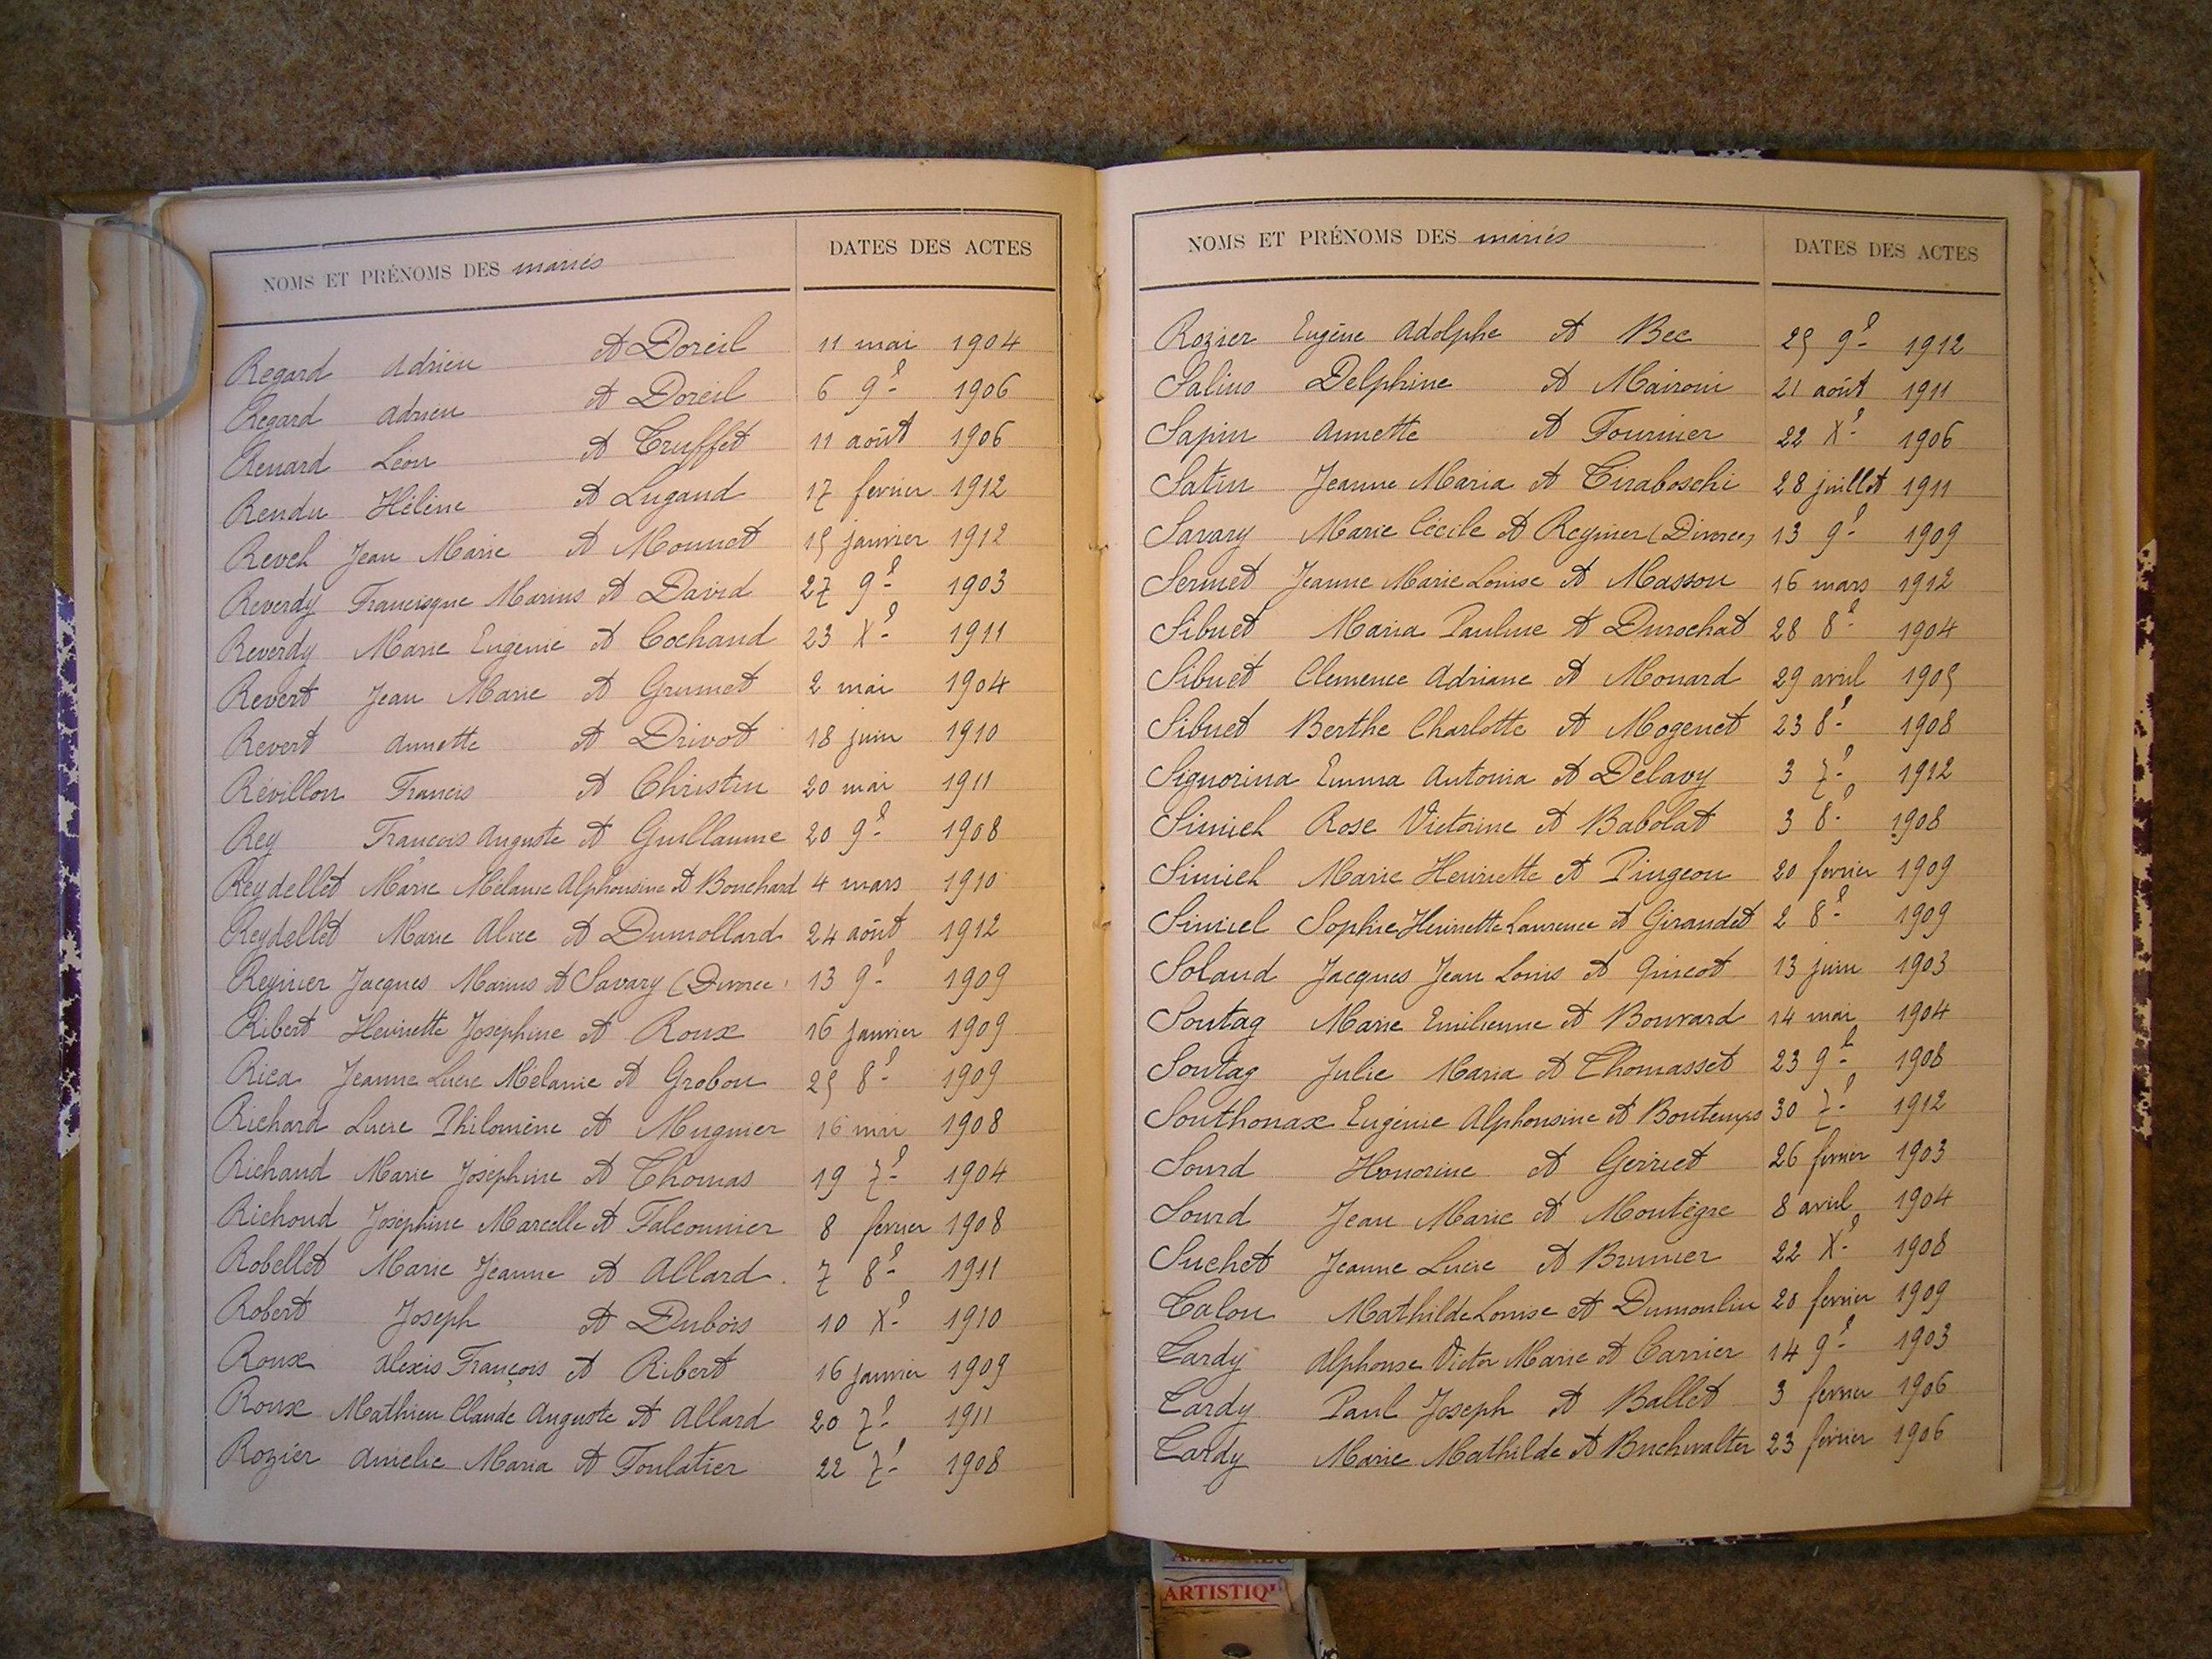 NOMS ET PRÉNOMS DES mariés DATES DES ACTES
Regard Adrien et Doreil 11 mai 1904
Regard Adrien et Doreil 6 9e 1906
Renard Léon et Truffet 11 août 1906
Rendu Hélène et Lugand 17 fevrier 1912
Revel Jean Marie et Monnet 15 janvier 1912
Reverdy Francisque Marius et David 27 9e 1903
Reverdy Marie Eugenie et Cochand 23 Xe 1911
Revert Jean Marie et Grumet 2 mai 1904
Revert Annette et Drivot 18 juin 1910
Révillon Francis et Christin 20 mai 1911
Rey François Auguste et Guillaume 20 9e 1908
Reydellet Marie Mélanie Alphonsine et Bouchard 4 mars 1910
Reydellet Marie Alice et Dumollard 24 août 1912
Reynier Jacques Marius et Savary (Divorce) 13 9e 1909
Ribert Henriette Josephine et Roux 16 janvier 1909
Rica Jeanne Lucie Melanie et Grobon 25 8e 1909
Richard Lucie Philomène et Mugnier 16 mai 1908
Richaud Marie Joséphine et Thomas 19 7e 1904
Richoud Joséphine Marcelle et Falconnier 8 fevrier 1908
Robellet Marie Jeanne et Allard. 7 8e 1911
Robert Joseph et Dubois 10 Xe 1910
Roux Alexis François et Ribert 16 janvier 1909
Roux Mathieu Claude Auguste et Allard 20 7e 1911
Rozier Amélie Maria et Foulatier 22 7e 1908
NOMS ET PRÉNOMS DES mariés DATES DES ACTES
Rozier Eugène Adolphe et Bec 25 9e 1912
Salins Delphine et Maironi 21 août 1911
Sapin Annette et Fournier 22 Xe 1906
Satin Jeanne Maria et Tiraboschi 28 juillet 1911
Savary Marie Cécile et Reynier (Divorce) 13 9e 1909
Sermet Jeanne Marie Louise et Masson 16 mars 1912
Sibuet Maria Pauline et Durochat 28 8e 1904
Sibuet Clemence Adriane et Monard 29 avril 1905
Sibuet Berthe Charlotte et Mogenet 23 8e 1908
Signorina Emma Antonia et Delavy 3 7e 1912
Simiel Rose Victorine et Babolat 3 8e 1908
Simiel Marie Henriette et Pingeon 20 fevrier 1909
Simiel Sophie Henriette Laurence et Giraudet 2 8e 1909
Soland Jacques Jean Louis et Quicot 13 juin 1903
Sontag Marie Emilienne et Bouvard 14 mai 1904
Sontag Julie Maria et Thomasset 23 9e 1908
Southonax Eugénie Alphonsine et Bontemps 30 7e 1912
Sourd Honorine et Gerriet 26 fevrier 1903
Sourd Jean Marie et Montègre 8 avril 1904
Suchet Jeanne Lucie et Brunier 22 Xe 1908
Talon Mathilde Louise et Dumoulin 20 fevrier 1909
Tardy Alphonse Victor Marie et Carrier 14 9e 1903
Tardy Paul Joseph et Ballet 3 fevrier 1906
Tardy Marie Mathilde et Buchwalter 23 février 1906
ARTISTIQU